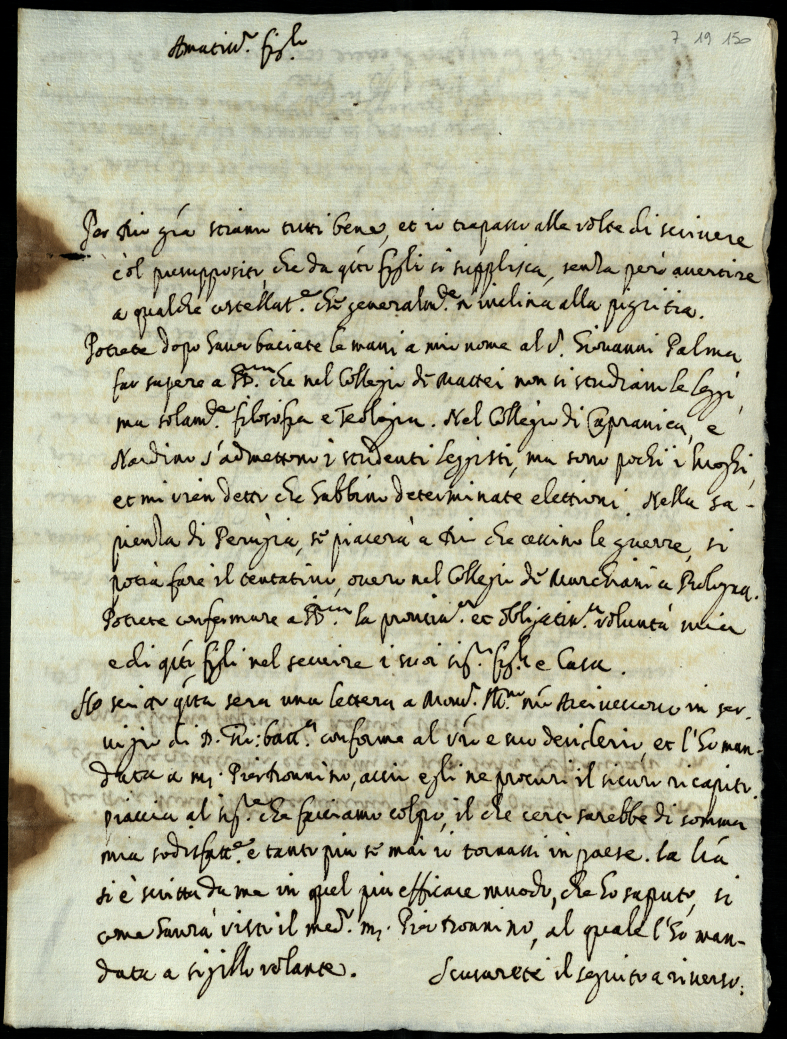 7 19 150
Amatiss.r figli
Per Dio gra stiamo tutti bene, et io trapasso alle volte di scrivere
col presupposito, che da q.ti figli si supplisca, senza però avertire
a qualche costellat.e che generalm.te n'inclina alla pigritia.
Potrete dopo haver baciate le mani a mio nome al S. Giovanni Palma
far sapere a che nel Collegio de Mattei non si studiano le leggi,
ma solam.te filosofia e Teologia. Nel Collegio di Capranica, e
Nardino s'admettono i studenti leggisti, ma sono pochi i luoghi,
et mi vien detto che habbino determinate elettioni. Nella Sa-
pienza di Perugia, se piacerà a Dio che cessino le guerre, si
potrà fare il tentativo, overo nel Collegio de Marchiani a Bologna.
Potrete confermare a la prontiss.a et obligatiss.a voluntà mia
e di q.ti figli nel servire i suoi sig.ri figli e Casa.
Ho scritto q.ta sera una lettera a Mons. Ill.mo nro Arcivescovo in ser-
vigio di D. Gio: batt.a conforme al vro e suo desiderio et l'ho man-
data a m. Pietronnino, acciò egli ne procuri il sicuro ricapito.
piaccia al sig.re che facciamo colpo, il che certo sarebbe di somma
mia sodisfatt.e e tanto più se mai io tornassi in paese. la lra
si è scritta da me in quel più efficace muodo, che ho saputo, si
come haurà visto il med.o m. Pietronnino, al quale l'ho man-
data a sigillo volante. Scusarete il seguito a riverso: